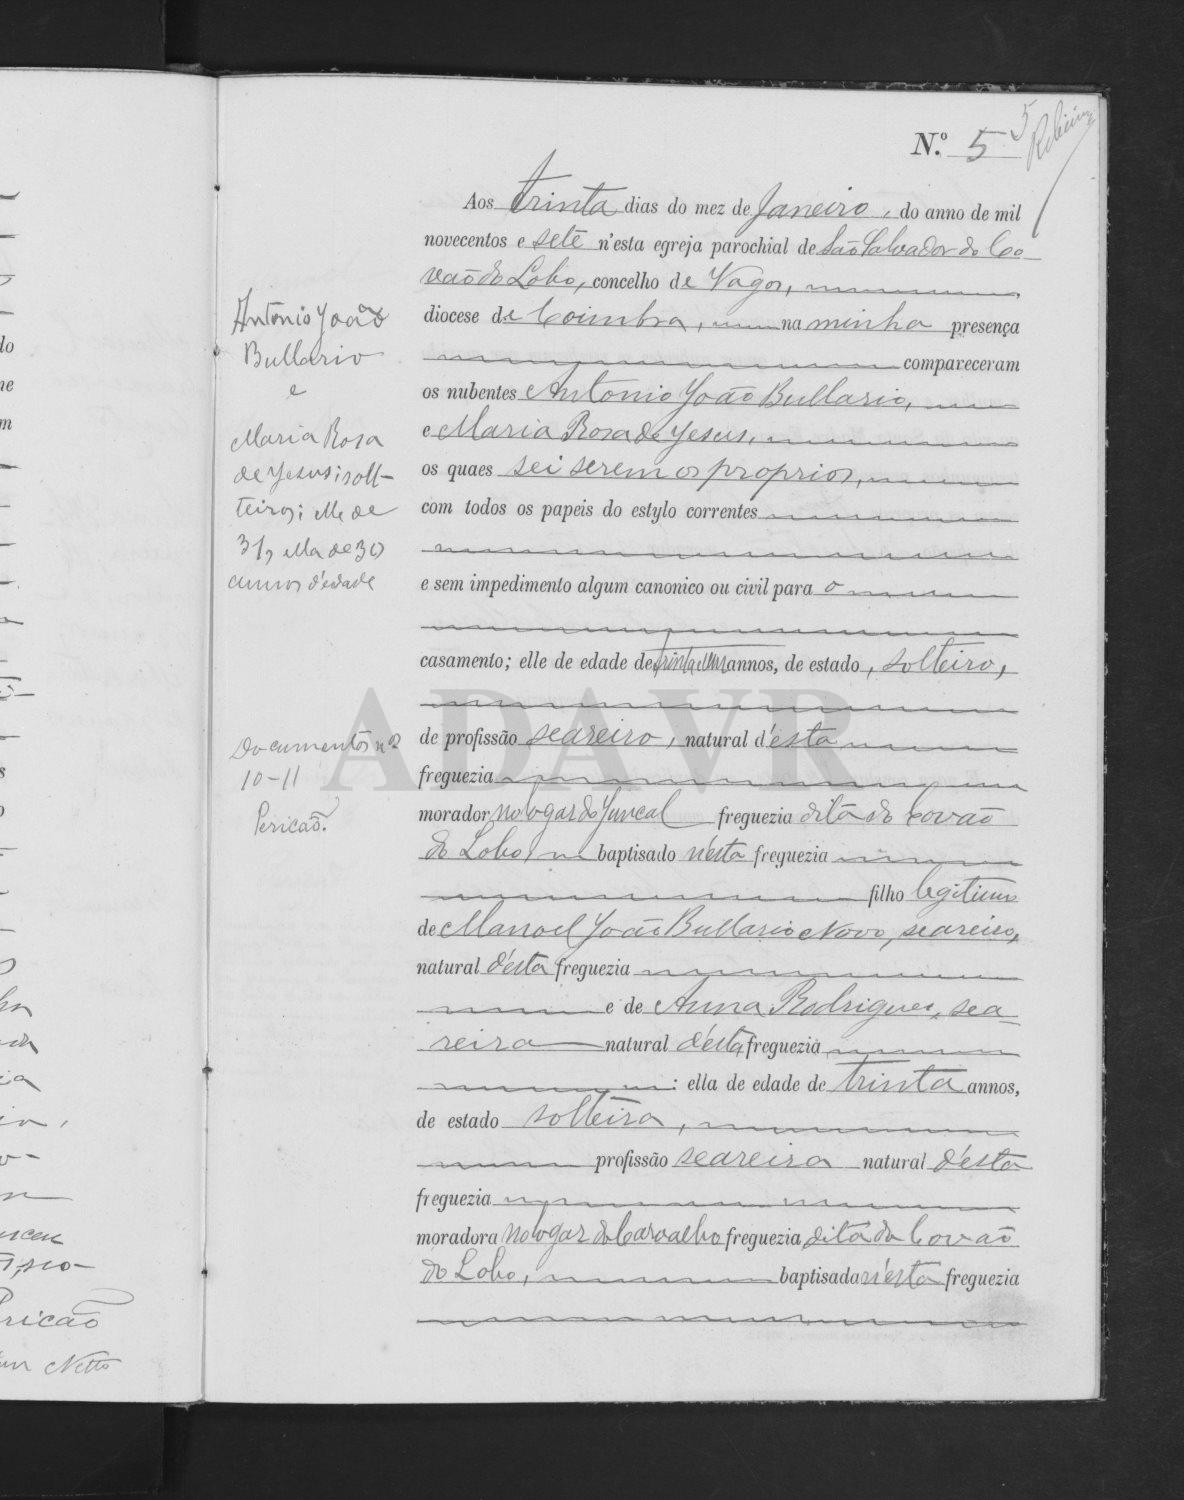 N.º 5
5
Ribeiro
Aos trinta dias do mez de Janeiro, do anno de mil
novecentos e sete n'esta egreja parochial de São Salvador do Co-
vão do Lobo, concelho de Vagos,
diocese de Coimbra, na minha presença
compareceram
os nubentes Antonio João Bullario,
e Maria Rosa de Jesus,
os quaes sei serem os proprios,
com todos os papeis do estylo correntes
e sem impedimento algum canonico ou civil para o
casamento; elle de edade de trinta e um annos, de estado, solteiro,
de profissão seareiro, natural d'esta
freguezia
morador no logar do Juncal freguezia dita do Covão
do Lobo, baptisado n'esta freguezia
filho legitimo
de Manoel João Bullario Novo, seareiro,
natural d'esta freguezia
e de Anna Rodrigues, sea-
reira natural d'esta freguezia
: ella de edade de trinta annos,
de estado solteira,
profissão seareira natural d'esta
freguezia
moradora no logar do Carvalho freguezia dita do Covão
do Lobo, baptisada n'esta freguezia
Antonio João
Bullario
e
Maria Rosa
de Jesus; sol-
teiros; elle de
31, ella de 30
annos d'edade
Documentos nos
10-11
Pericão.
ADAVR
Pericão
Netto